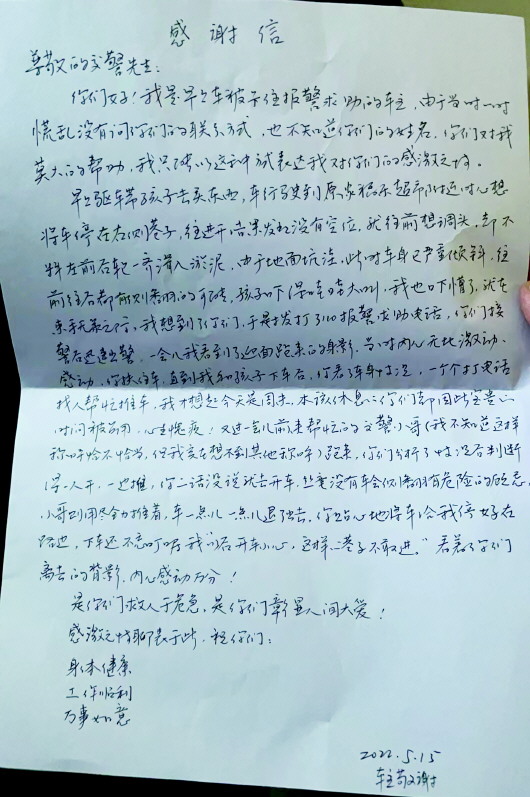 感谢信
尊敬的交警先生：
你们好！我是早上车被卡住报警求助的车主，由于当时一时
慌乱没有问你们的联系方式，也不知道你们的姓名，你们对我
莫大的帮助，我只能以这种方式表达我对你们的感激之情。
早上驱车带孩子去买东西，车行驶到原家福乐超市附近时心想
将车停在右侧巷子，往进开结果发现没有空位，就往前想调头，却不
料左前后轮一齐滑入淤泥，由于地面坑洼，此时车身已严重倾斜，往
前往后都有侧翻的可能，孩子吓得哇哇大叫，我也吓懵了，就在
束手无策之际，我想到了你们，于是拨打了110报警求助电话，你们接
警后迅速出警，一会儿我看到了迎面跑来的身影，当时内心无比激动、
感动，你扶住车，直到我和孩子下车后，你看了车身情况，一个个打电话
找人帮忙推车，我才想起今天是周末，本该休息的你们却因此宝贵的
时间被占用，心生愧疚！又过一会儿前来帮忙的交警小哥（我不知道这样
称呼恰不恰当，但我实在想不到其他称呼）跑来，你们分析了情况后判断
得一人开，一边推，你二话没说就去开车，丝毫没有车会侧翻有危险的顾忌，
小哥则用尽全力推着，车一点儿一点儿退出去，你贴心地将车给我停好在
路边，下车还不忘叮嘱我“以后开车小心，这样的巷子不敢进。”看着你们
离去的背影，内心感动万分！
是你们救人于危急，是你们彰显人间大爱！
感激之情聊表于此，祝你们：
身体健康
工作顺利
万事如意
2022.5.15
车主敬谢